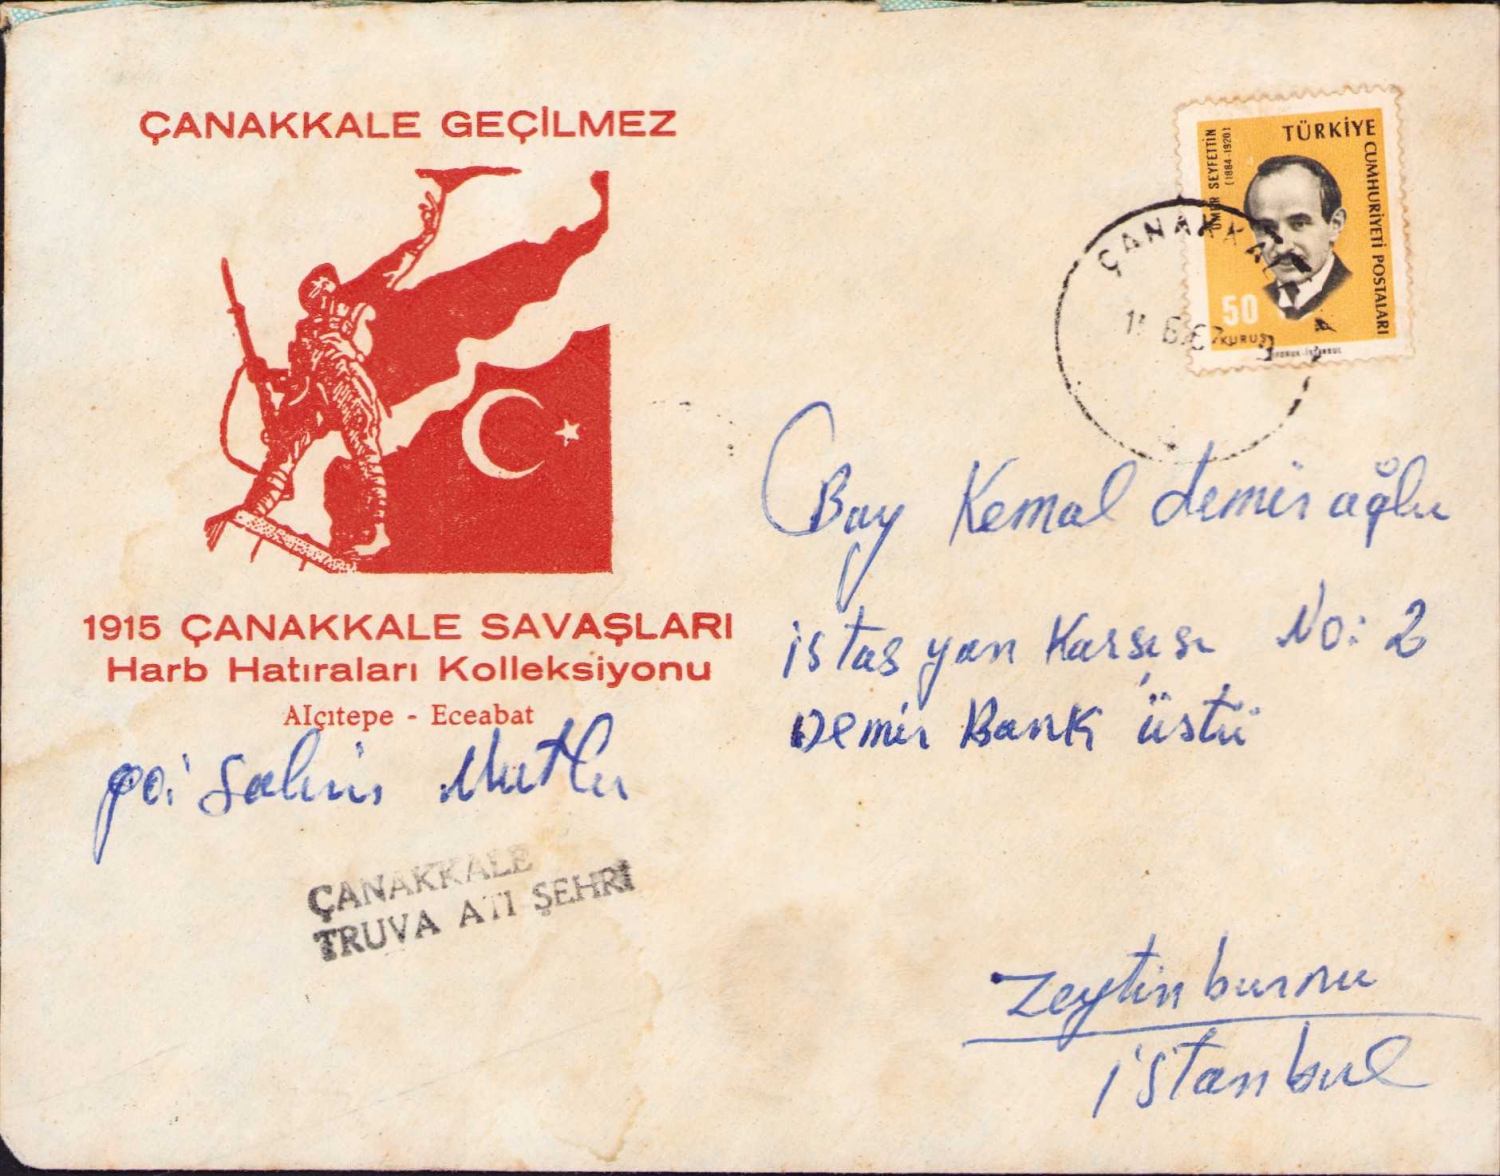 ÇANAKKALE GEÇİLMEZ
TÜRKİYE
CUMHURİYETİ POSTALARI
ÖMER SEYFETTİN
(1884-1920)
50
KURUŞ
ÇANAKKALE
1915 ÇANAKKALE SAVAŞLARI
Harb Hatıraları Kolleksiyonu
Alçıtepe - Eceabat
Salim Mutlu
ÇANAKKALE
TRUVA ATI ŞEHRİ
Bay Kemal Demiroğlu
istasyon Karşısı No: 2
Demir Bank üstü
Zeytinburnu
istanbul